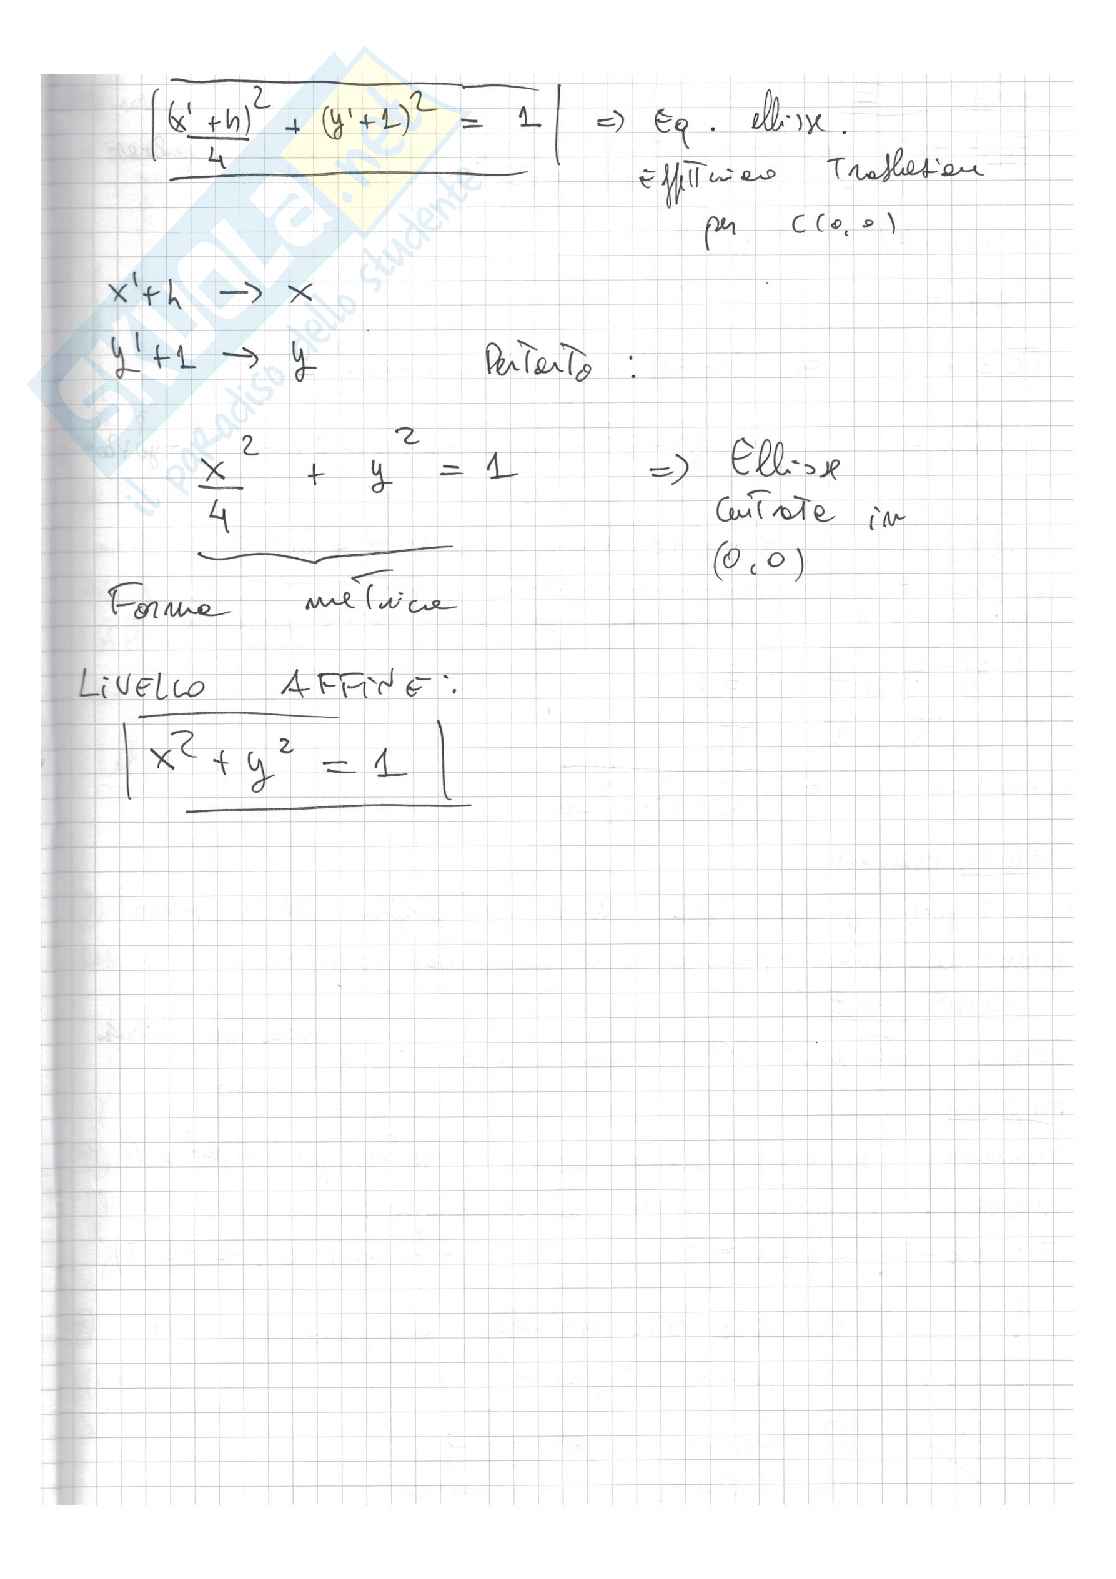 (x'+h)²/4 + (y'+1)² = 1 => Eq. ellisse.
Effettuiamo Traslazione
per C(0,0)
x'+h → x
y'+1 → y Pertanto :
x²/4 + y² = 1 => Ellisse
centrata in
(0,0)
Forma metrica
LIVELLO AFFINE:
x² + y² = 1
SKUOLA.net
il paradiso dello studente